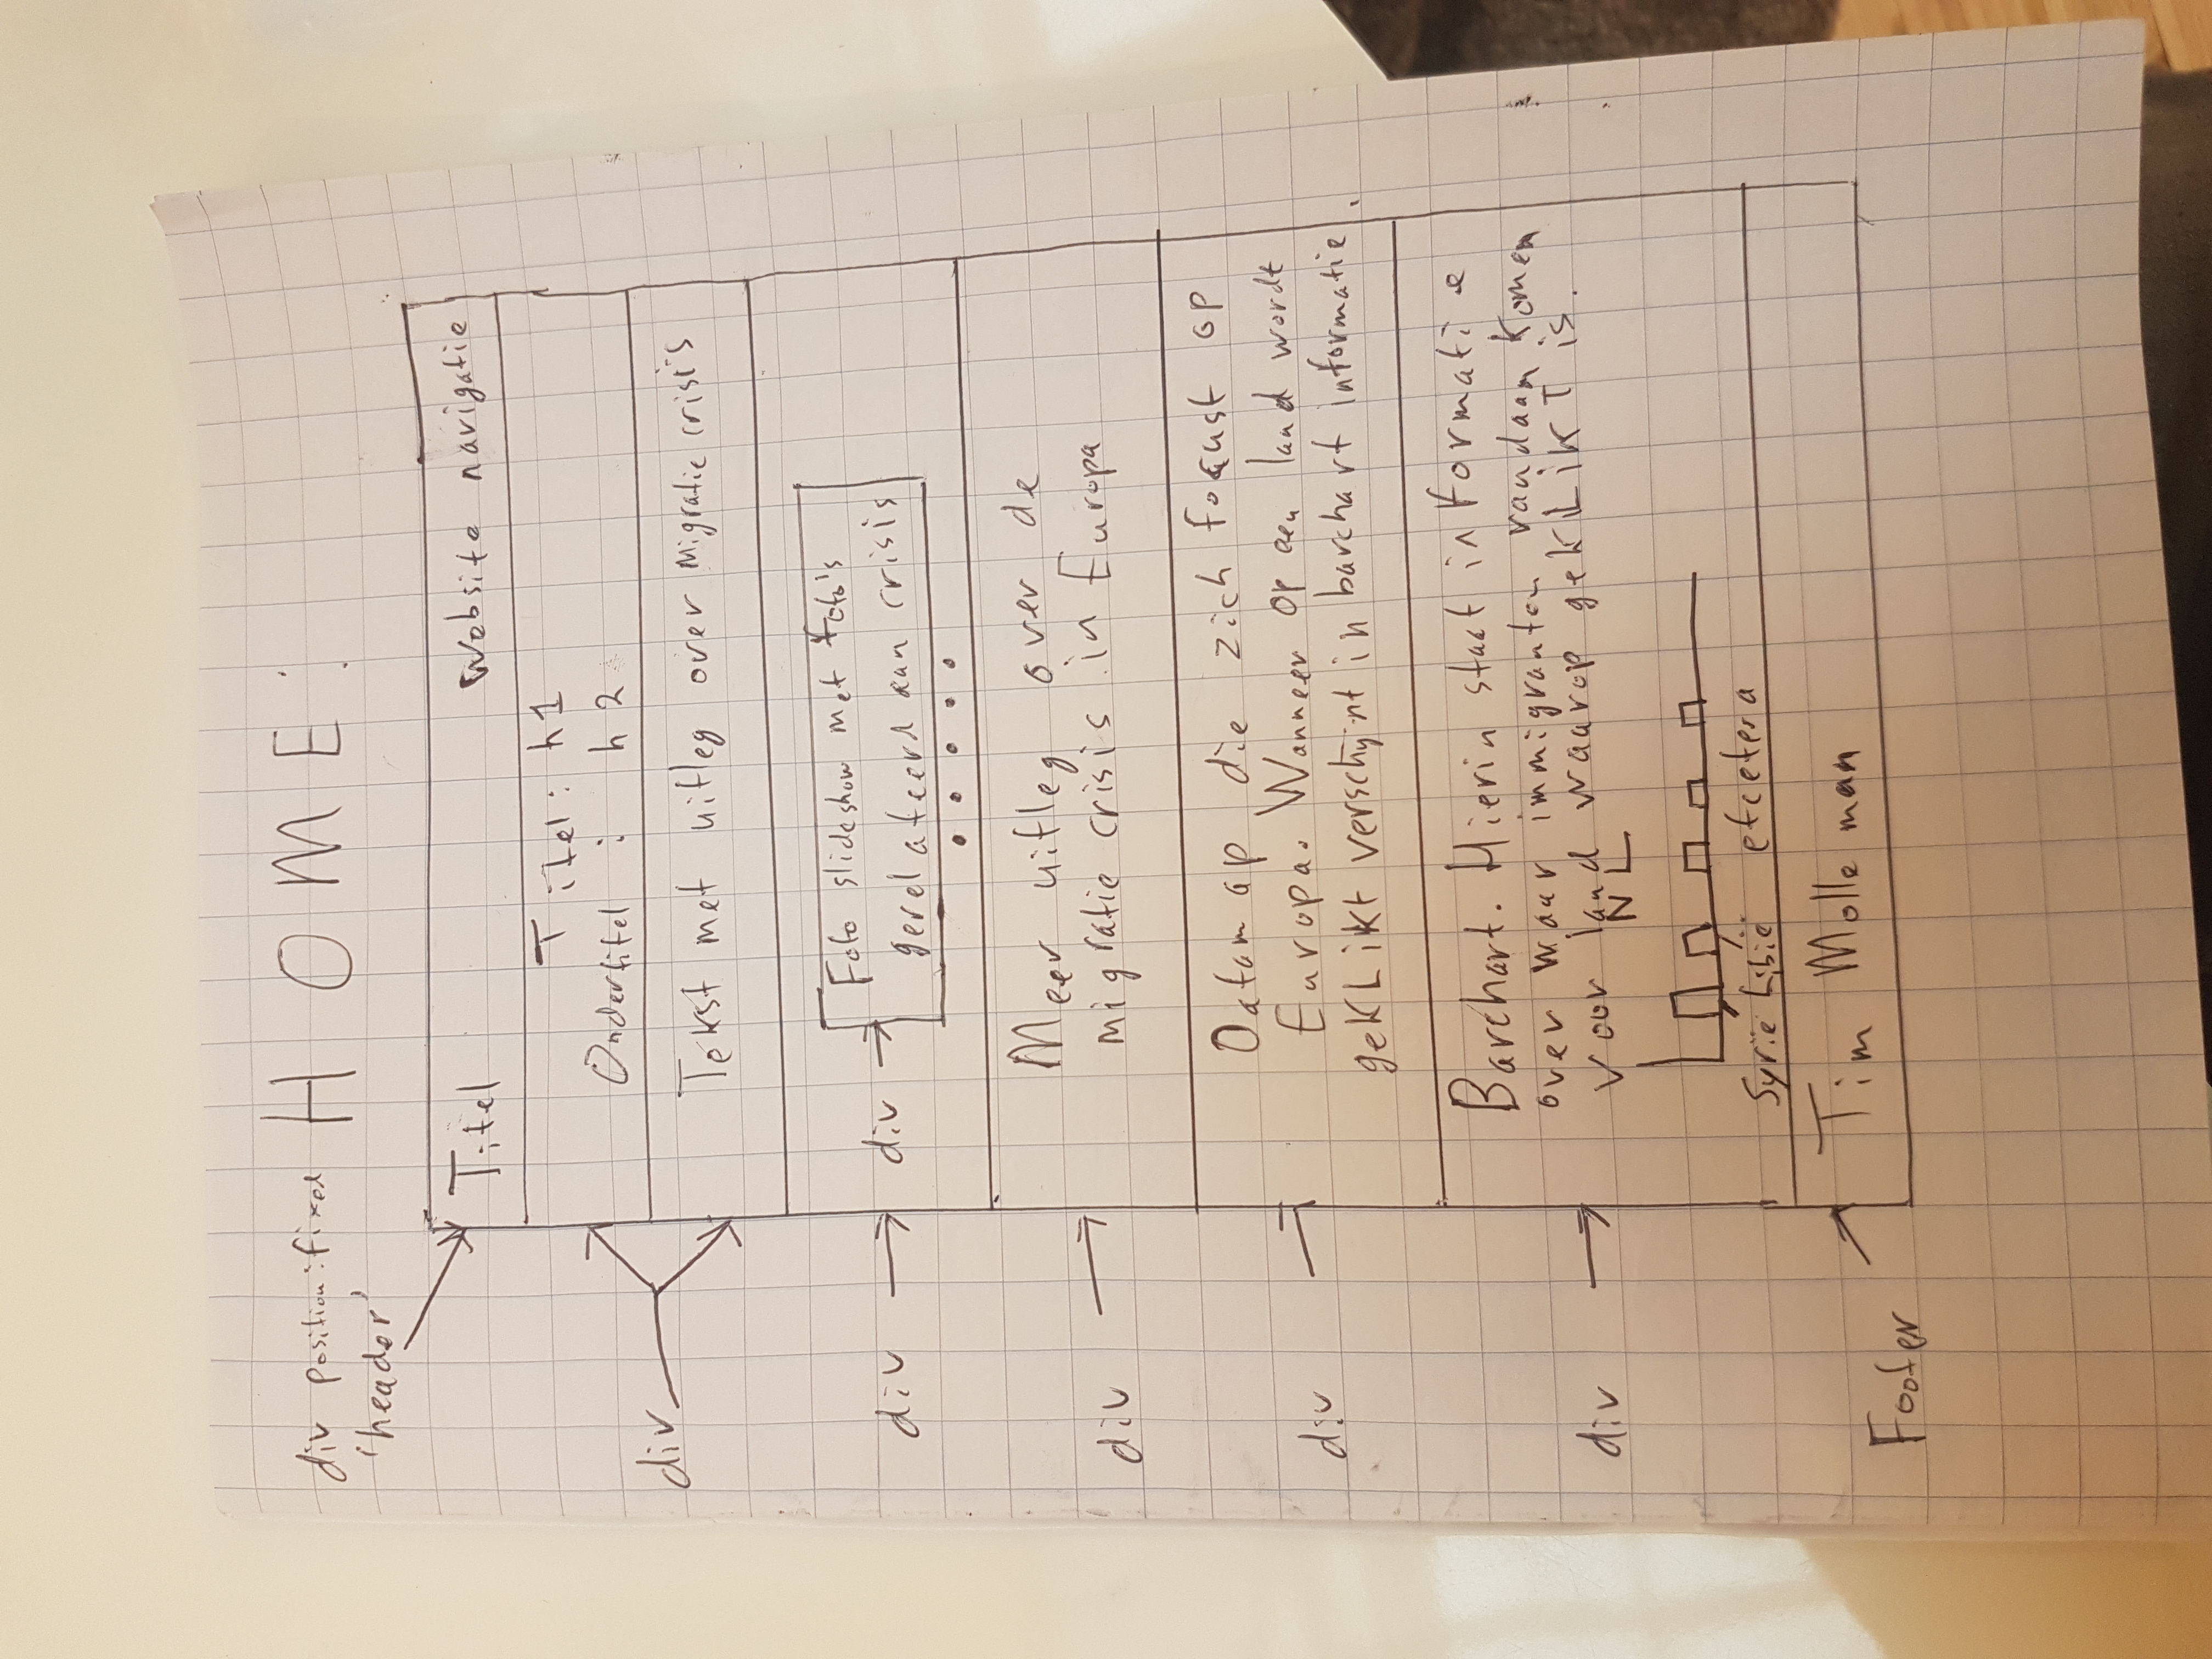 HOME:
div position:fixed
'header'
Titel Website navigatie
Titel: h1
Ondertitel : h2
div
Tekst met uitleg over Migratie crisis
div div Foto slideshow met foto's
gerelateerd aan crisis
div Meer uitleg over de
migratie crisis in Europa
div Datamap die zich focust op
Europa. Wanneer op een land wordt
geklikt verschijnt in barchart informatie.
div Barchart. Hierin staat informatie
over waar immigranten vandaan komen
voor land waarop geklikt is.
NL
Syrië Libië etcetera
Footer Tim Molleman